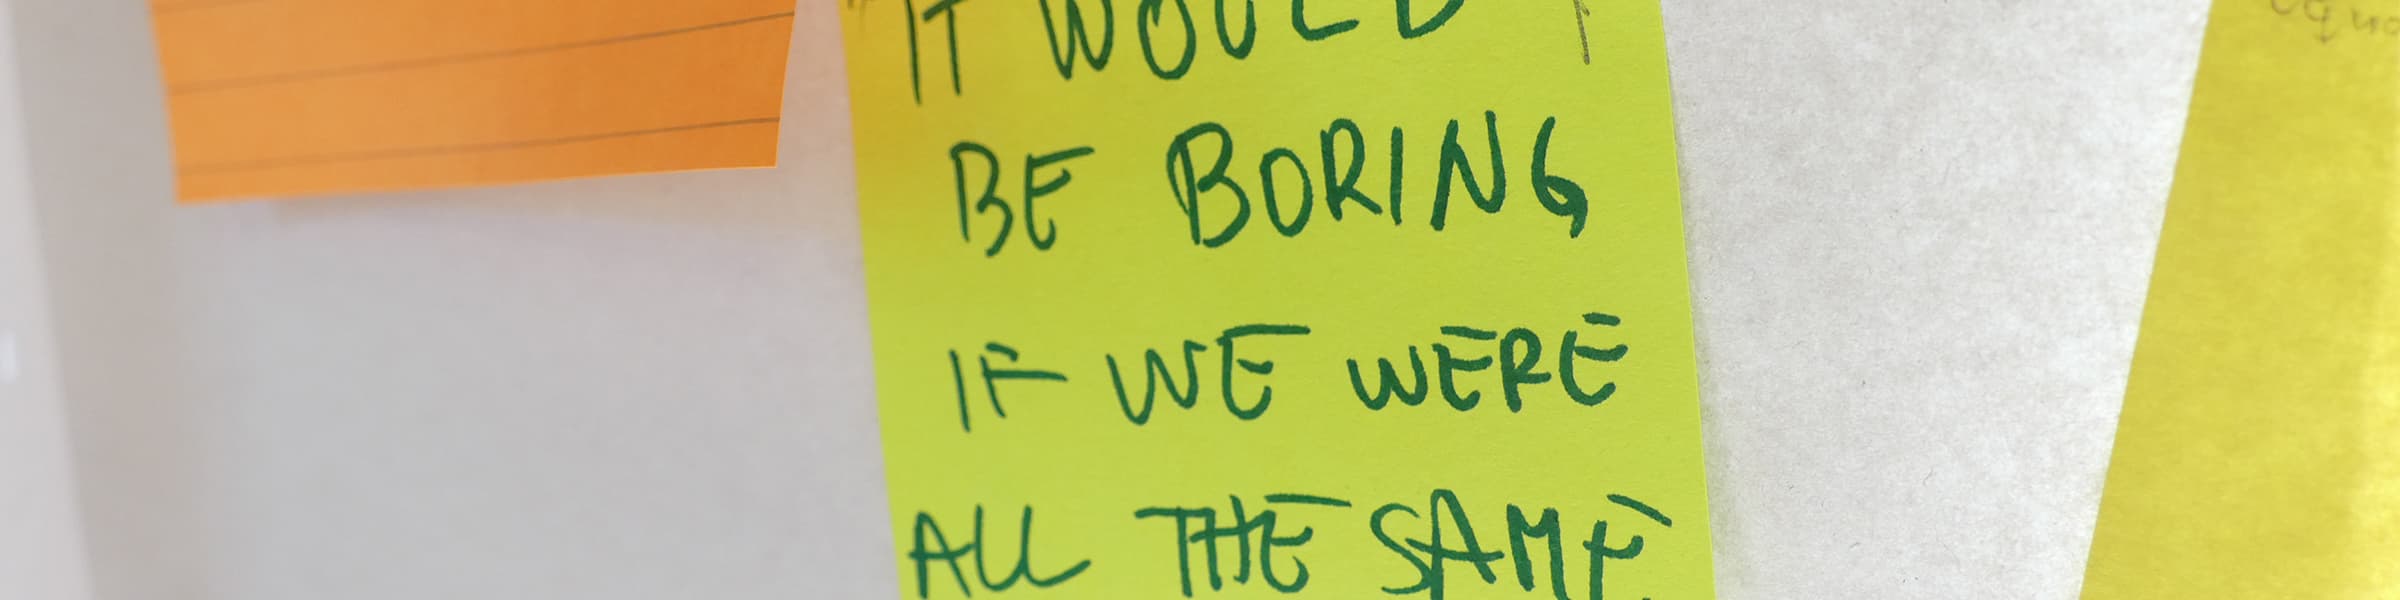 IT WOULD
BE BORING
IF WE WERE
ALL THE SAME.